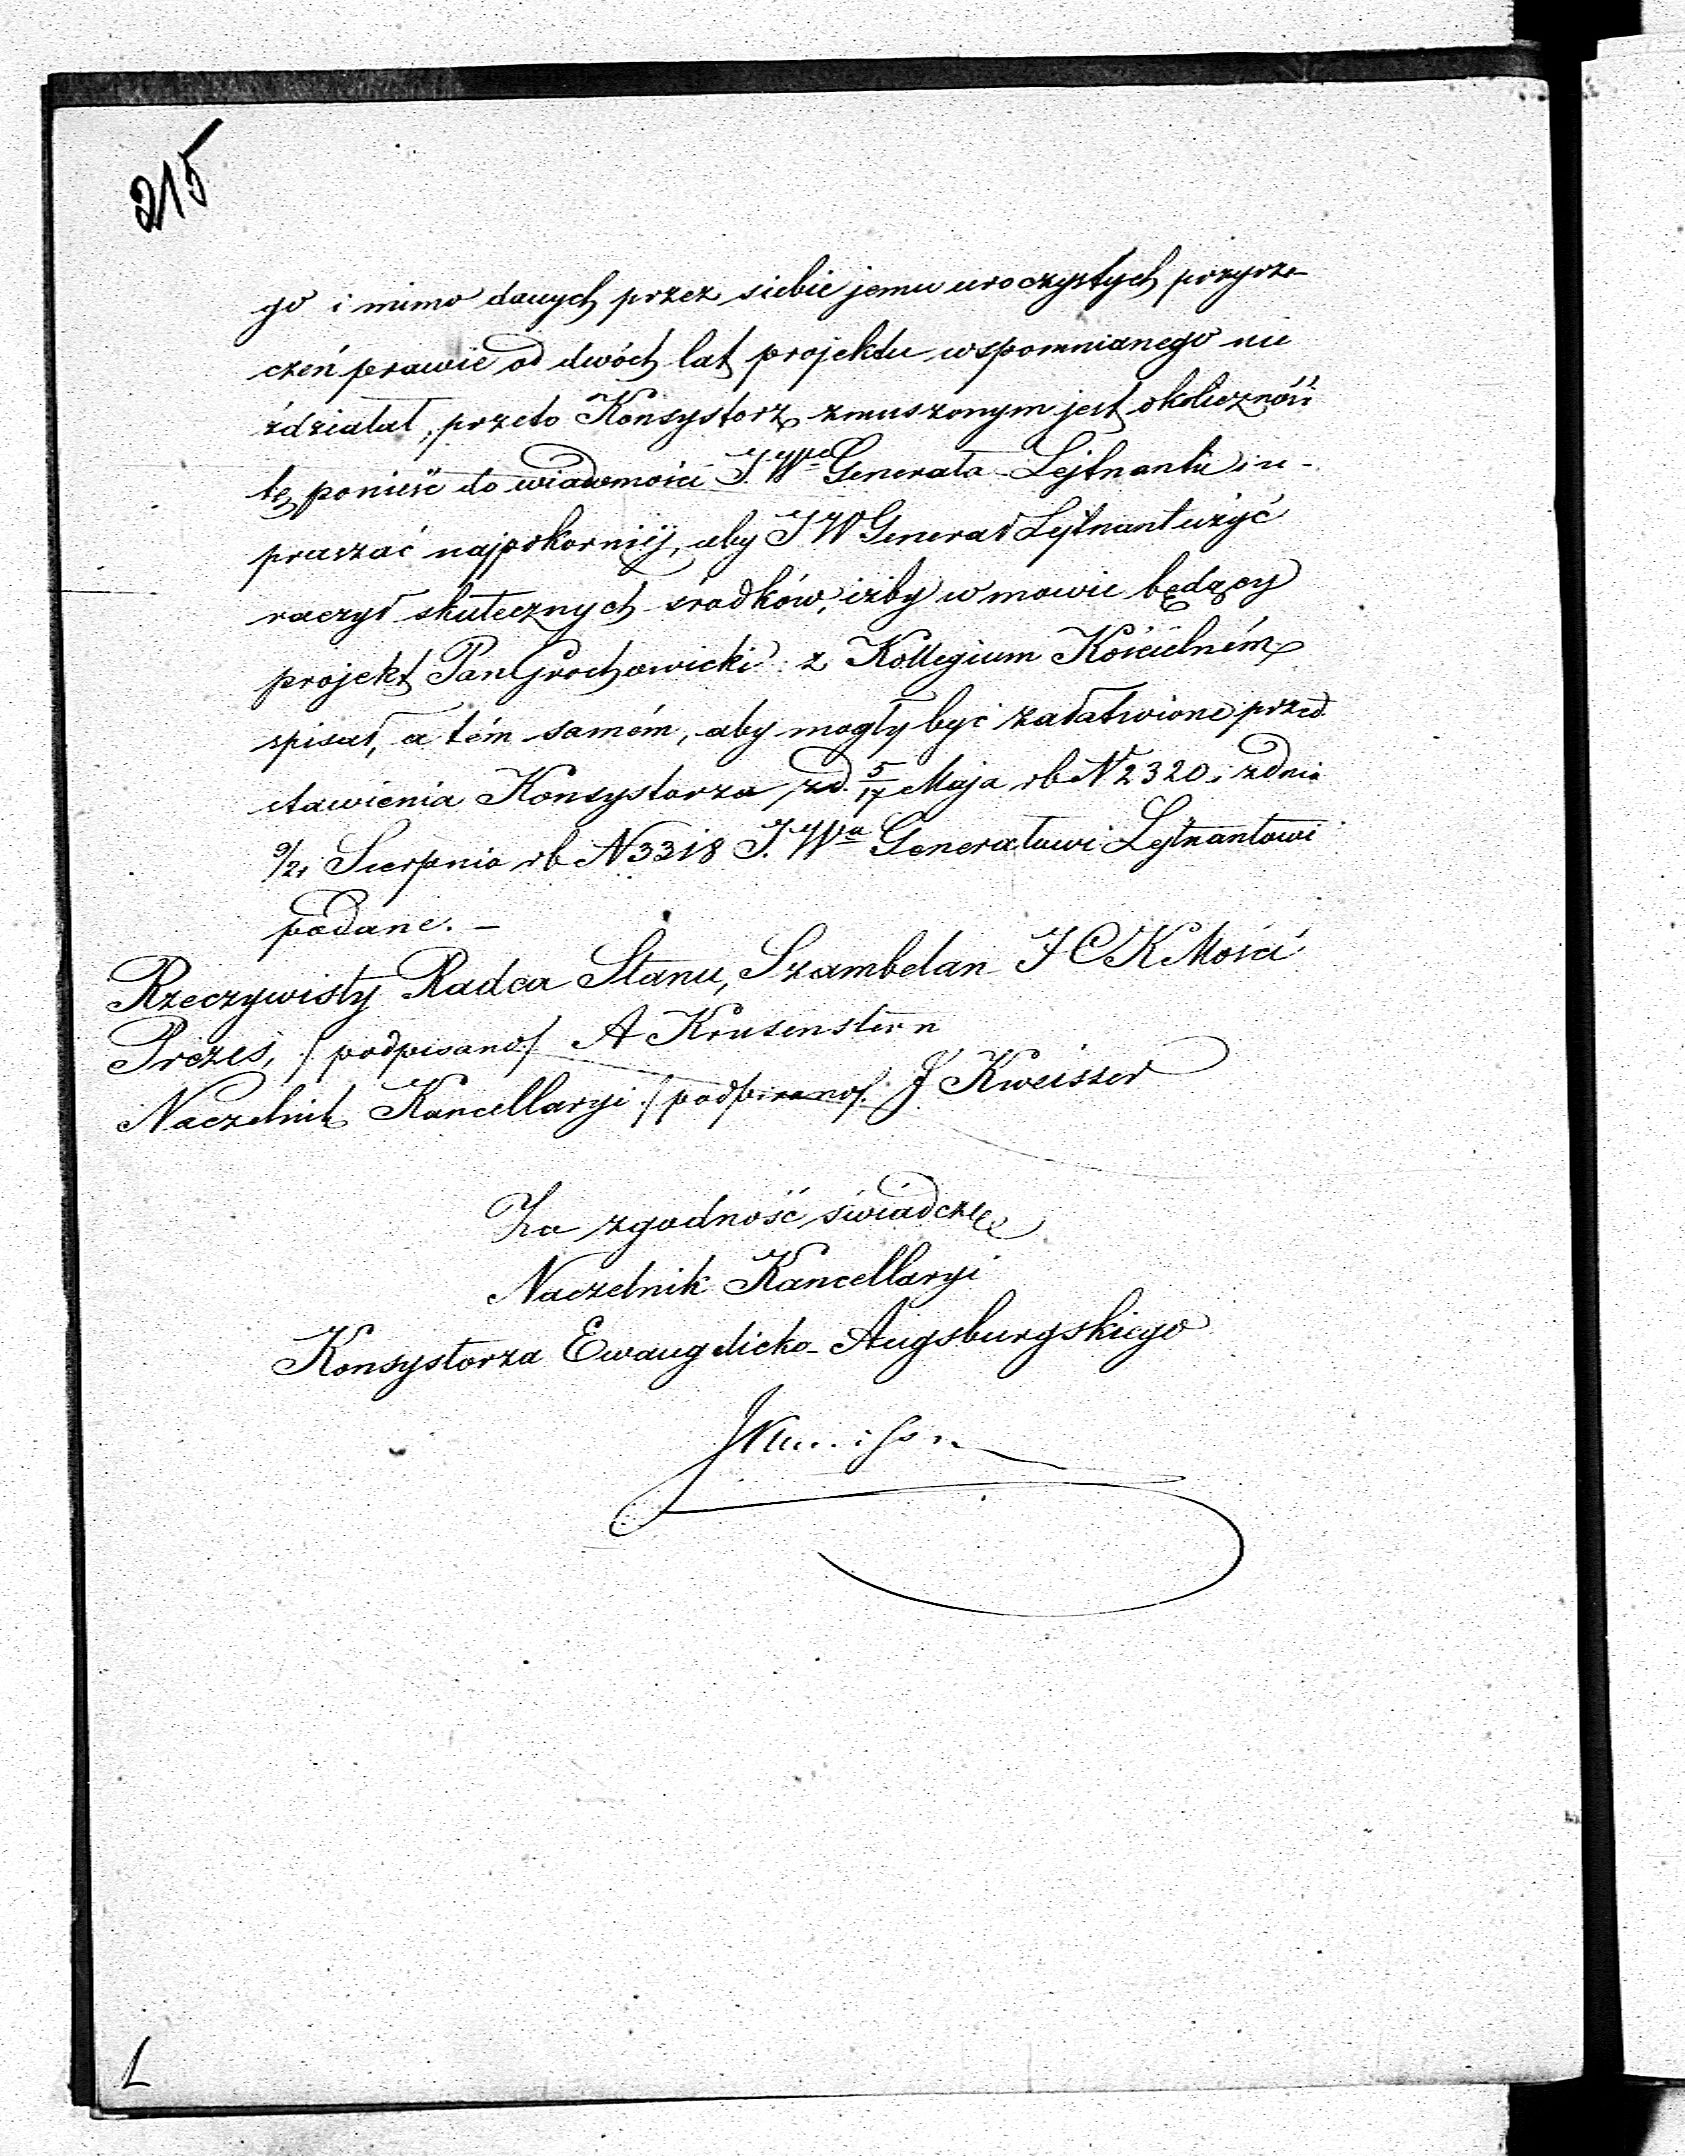 215
go i mimo danych przez siebie jemu uroczystych przyrze
czeń prawie od dwóch lat projektu wspomnianego nie
zdziałał, przeto Konsystorz zmuszonym jest okoliczność
tę ponieść do wiadomości J. Wgo Generała Lejtnanta i u-
praszać najpokorniéj, aby J W Generał Lejtnant użyć
raczył skutecznych srodków, iżby w mowie będący
projekt Pan Grochowicki z Kollegium Kościelném
spisał, a tém samém, aby mogły być załatwione przed
stawienia Konsystorza z d. 5/17 Maja rb N 2320 i z dnia
9/21 Sierpnia rb N 3318 J. Wu Generałowi Lejtnantowi
podane. —
Rzeczywisty Radca Stanu, Szambelan J C K Mości
Prezes, /podpisano/ A Krusenstern
Naczelnik Kancellaryi /podpisano/ J Kweisser
Za zgodność świadczę
Naczelnik Kancellaryi
Konsystorza Ewangelicko-Augsburgskiego
L